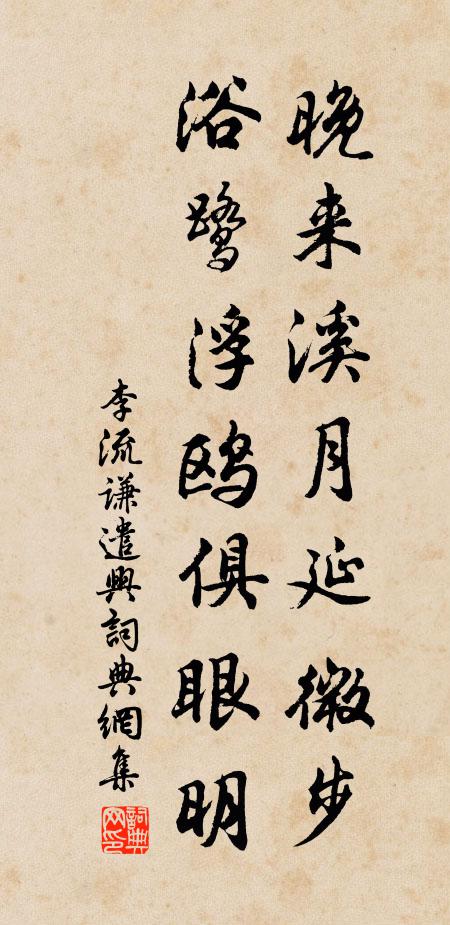 晚来溪月延微步
浴鹭浮鸥俱眼明
李流谦遣興詞典網集
詞典网印